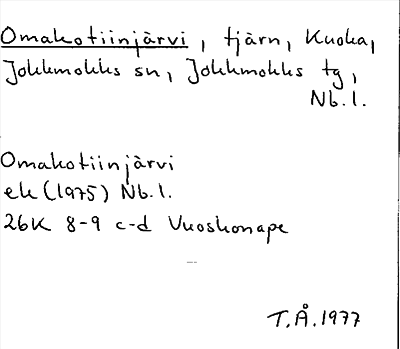 Omakotiinjärvi, tjärn, Kuoka,
Jokkmokks sn, Jokkmokks tg,
Nb.l.
Omakotiinjärvi
ek (1975) Nb.l.
26K 8-9 c-d Vuoskonape
T.Å. 1977